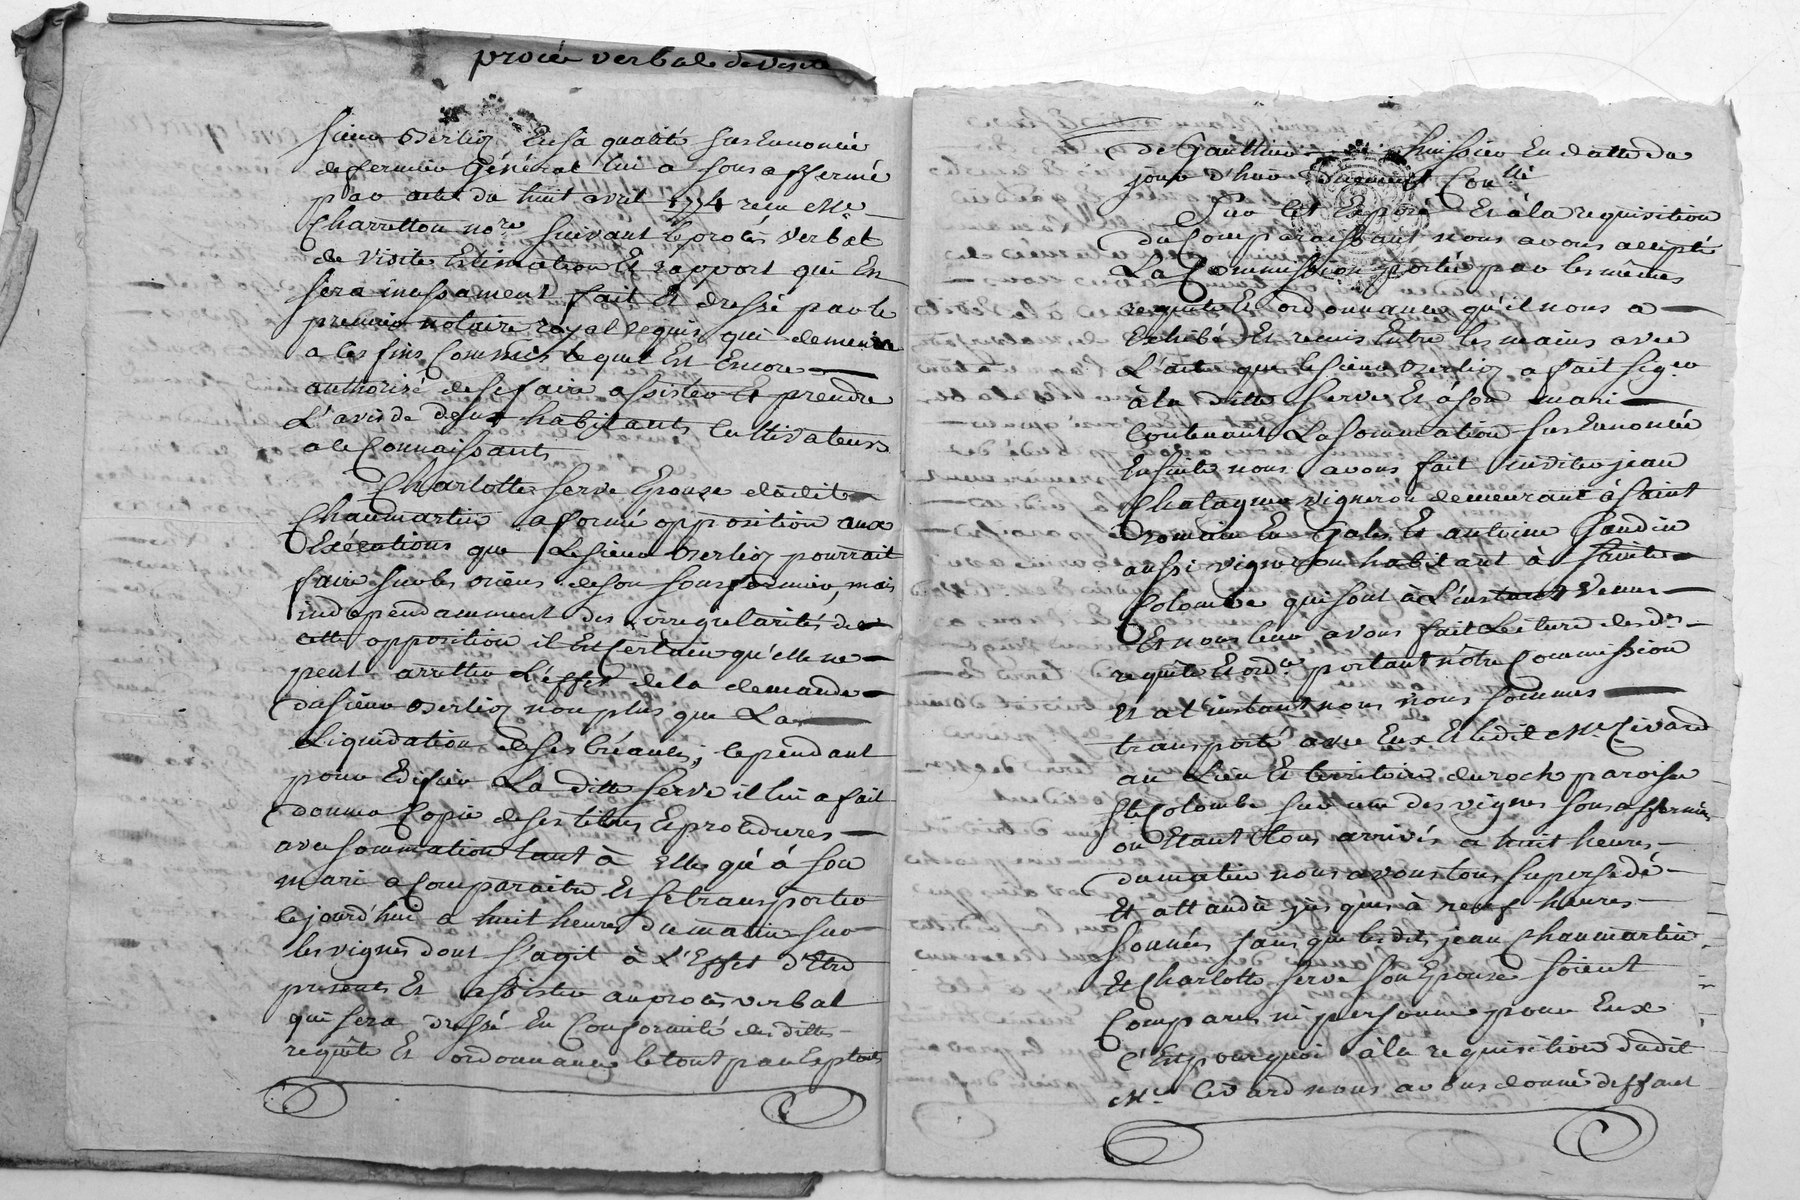 procès verbal de visite
sieur Berlioz En sa qualité sus Enoncée
de fermier Général lui a sous affermé
par acte du huit avril 1774 recu Me
Charretton nore suivant le procès verbal
de visite Estimation Et rapport qui En
sera incessament fait Et dressé par le
premier notaire royal requis qui demeure
a ces fins Commis lequel Est Encore
authorisé de se faire assister Et prendre
L'avis de deux habitants Cultivateurs
a ce Connaissants
Charlotte Serve Epouse dudit
Chaumartin a formé opposition aux
Exécutions que Le sieur Berlioz pourrait
faire sur les biens de son sous fermier, mais
independamment des irregularités de
cette opposition il Est Certain qu'elle ne
peut arretter L'effet de la demande
du sieur Berlioz non plus que La
Liquidation de ses Créances; cependant
pour Edifier La ditte Serve il lui a fait
donner Copie de ses titres Et procedures
avec sommation tant à Elle qu'à son
mari a Comparaitre Et se transporter
cejourd'hui a huit heures du matin sur
les vignes dont s'agit à L'Effet d'Etre
presents Et assister au procès verbal
qui sera dressé En Conformité des dittes
requête Et ordonnance le tout par Exploits
de Gauthier huissier En datte du
jour d'hier duement Conllé
Sur Cet Exposé Et à la requisition
du Comparaissant nous avons accepté
La Commission portée par les mêmes
requête Et ordonnance qu'il nous a
Exhibé Et remis Entre les mains avec
L'acte que le sieur Berlioz a fait signer
à la ditte Serve Et à son mari
Contenant La sommation sus Enoncée
Ensuite nous avons fait inviter jean
Chatagner vigneron demeurant à Saint
Romain En Gales Et antoine
aussi vigneron habitant à Sainte
Colombe qui sont à L'instant Venus
Et nous leur avons fait Lecture desdes
requête Et orde portant nôtre Commission
Et a L'instant nous nous sommes
transporté avec Eux Et ledit Me Civard
au Lieu Et territoire du roch paroisse
Ste Colombe sur une des vignes sous affermées
ou Etant tous arrivés a huit heures
du matin nous avons tous supersedé
Et attandu jusqu'à neuf heures
sonnées sans que lesdits jean Chaumartin
Et Charlotte Serve son Epouse soient
Comparus ni personne pour Eux
C'Est pourquoi à la requisition dudit
Me Civard nous avons donné deffaut